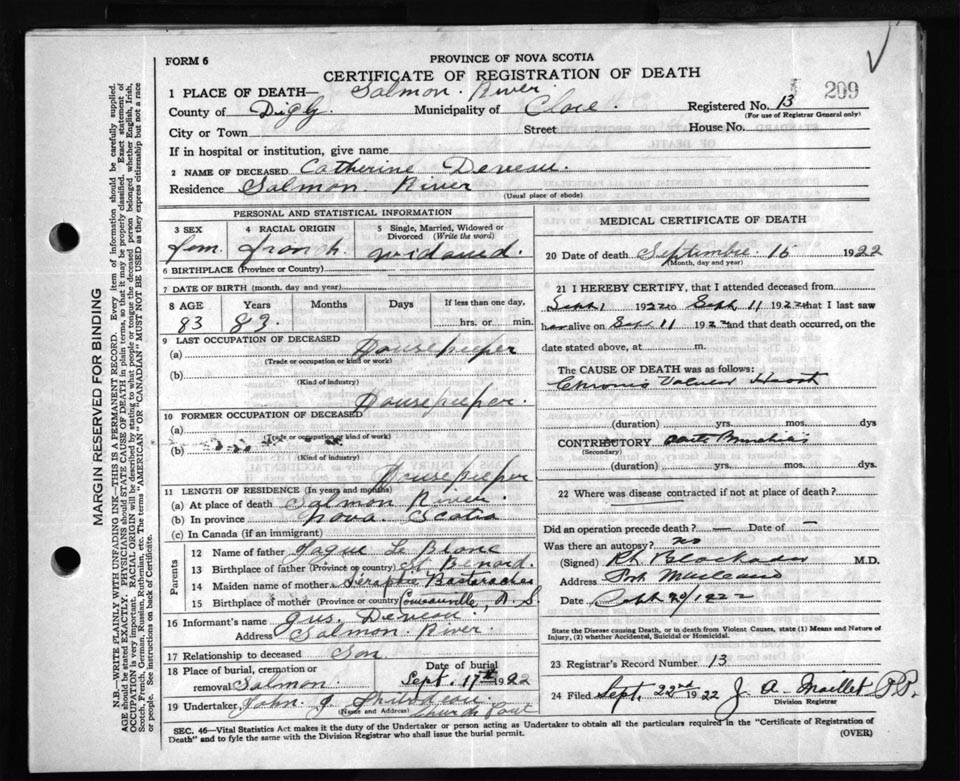 FORM 6
PROVINCE OF NOVA SCOTIA
CERTIFICATE OF REGISTRATION OF DEATH
209
1 PLACE OF DEATH— Salmon River
County of Digby Municipality of Clare. Registered No. 13
(For use of Registrar General only)
City or Town Street House No.
If in hospital or institution, give name
2 NAME OF DECEASED Catherine Deveau.
Residence Salmon River
(Usual place of abode)
PERSONAL AND STATISTICAL INFORMATION
3 SEX 4 RACIAL ORIGIN 5 Single, Married, Widowed or Divorced (Write the word)
fem. french.
6 BIRTHPLACE (Province or Country)
7 DATE OF BIRTH (month, day and year)
8 AGE Years Months Days If less than one day,
83 83. hrs. or min.
9 LAST OCCUPATION OF DECEASED
(a) Housekeeper
(Trade or occupation or kind of work)
(b)
(Kind of industry)
Housekeeper.
10 FORMER OCCUPATION OF DECEASED
(a)
(Trade or occupation or kind of work)
(b)
(Kind of industry)
Housekeeper
11 LENGTH OF RESIDENCE (In years and months)
(a) At place of death Salmon River.
(b) In province Nova Scotia
(c) In Canada (if an immigrant)
Parents
12 Name of father Le Blanc
13 Birthplace of father (Province or country)
14 Maiden name of mother
15 Birthplace of mother (Province or country) Comeauville, N. S.
16 Informant's name Gus. Deveau
Address Salmon River.
17 Relationship to deceased Son
18 Place of burial, cremation or removal Salmon. Date of burial Sept. 17th 1922
19 Undertaker John J.
(Name and Address)
MEDICAL CERTIFICATE OF DEATH
20 Date of death Septembre 15 1922
(Month, day and year)
21 I HEREBY CERTIFY, that I attended deceased from
Sept 1 1922 to Sept 11 1922 that I last saw
her alive on Sept 11 1922 and that death occurred, on the
date stated above, at m.
The CAUSE OF DEATH was as follows:
Chronic Valvular Heart
(duration) yrs. mos. dys.
CONTRIBUTORY Acute Bronchitis
(Secondary)
(duration) yrs. mos. dys.
22 Where was disease contracted if not at place of death?
Did an operation precede death? — Date of —
Was there an autopsy? no
(Signed) M.D.
Address
Date Sept 20/1922
State the Disease causing Death, or in death from Violent Causes, state (1) Means and Nature of Injury, (2) whether Accidental, Suicidal or Homicidal.
23 Registrar's Record Number 13
24 Filed Sept. 22nd 1922 J. A. Maillet P.P.
Division Registrar
SEC. 46—Vital Statistics Act makes it the duty of the Undertaker or person acting as Undertaker to obtain all the particulars required in the "Certificate of Registration of
Death" and to fyle the same with the Division Registrar who shall issue the burial permit.
(OVER)
MARGIN RESERVED FOR BINDING
N.B.—WRITE PLAINLY WITH UNFADING INK—THIS IS A PERMANENT RECORD. Every item of information should be carefully supplied.
AGE should be stated EXACTLY. PHYSICIANS should STATE CAUSE OF DEATH in plain terms, so that it may be properly classified. Exact statement of
OCCUPATION is very important. RACIAL ORIGIN will be described by stating to what people or tongue the deceased person belonged whether English, Irish,
Scotch, French, German, Russian, Ruthenian, etc. The terms "AMERICAN" OR "CANADIAN" MUST NOT BE USED as they express citizenship but not a race
or people. See instructions on back of Certificate.